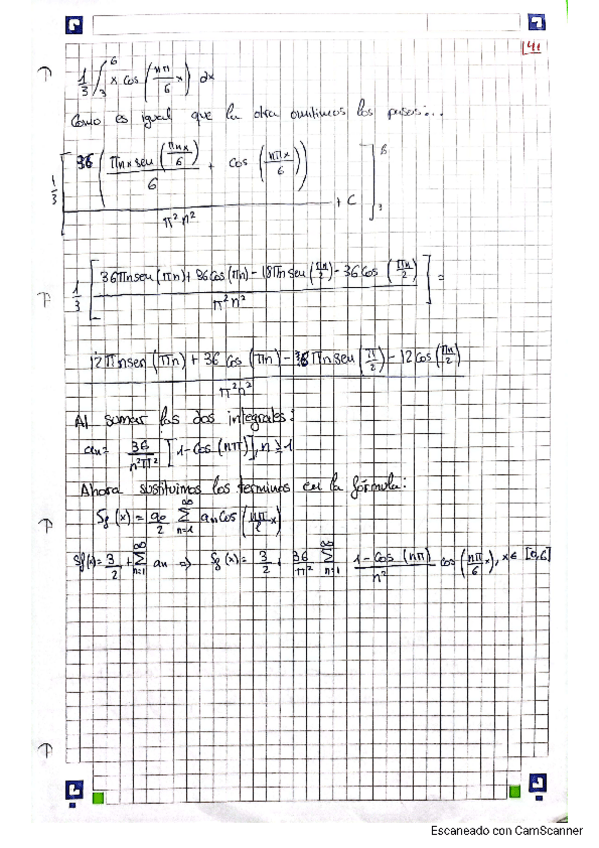 41
1/3 ∫₃⁶ x cos (nπ/6 x) dx
Como es igual que la otra omitimos los pasos...
1/3 [ 36 ( πnx sen (πnx/6) / 6 + cos (nπx/6) ) / π²n² + C ]₃⁶
1/3 [ 36πn sen (πn) + 36 cos (πn) - 18πn sen (πn/2) - 36 cos (πn/2) / π²n² ] =
12πn sen (πn) + 36 cos (πn) - 18πn sen (π/2) - 12 cos (πn/2) / π²n²
Al sumar las dos integrales:
an = 36/n²π² [1 - cos (nπ)], n ≥ 1
Ahora sustituimos los terminos en la fórmula:
Sf (x) = a₀/2 ∑ₙ₌₁^∞ an cos (nπ/L x)
Sf(x) = 3/2 + ∑ₙ₌₁^∞ an => Sf (x) = 3/2 + 36/π² ∑ₙ₌₁^∞ 1 - cos (nπ) / n² cos (nπ/6 x), x ∈ [0,6]
Escaneado con CamScanner